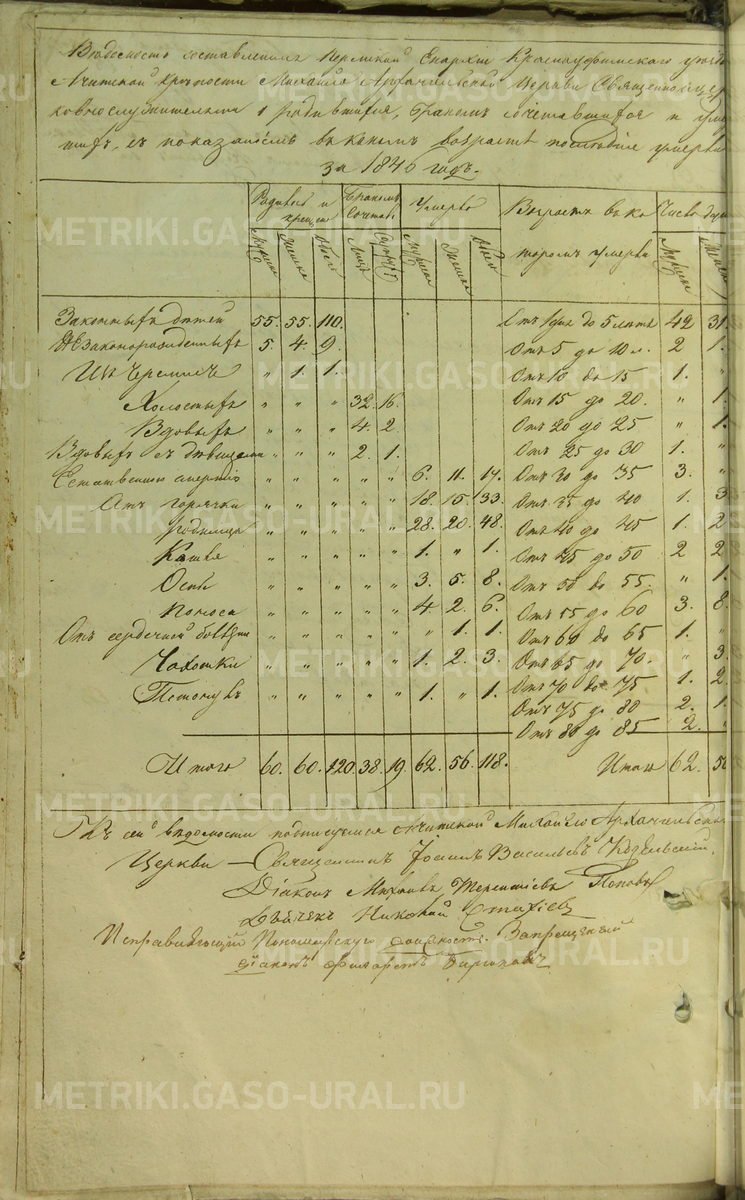 Ведомость составленная Пермской Епархіи Красноуфимскаго уѣзда
Ачитской крѣпости Михаило Архангельской Церкви Священноцер
ковнослужителями о родившихся, бракомъ сочетавшихся и умер
шихъ, съ показаніемъ въ какомъ возрастѣ послѣдніе умерли
за 1846 годъ.
Родивш и крещен Бракомъ Сочетав Умерло Возрастъ въ ко торомъ умерли Число душ
Мужеска Женска Всего Лицъ Супруж Мужеска Женска Всего Мужеска Женска
Законныхъ дѣтей 55. 55. 110. Отъ 1 дня до 5 лѣтъ 42 31
Незаконорожденныхъ 5. 4. 9. Отъ 5 до 10 л. 2 1.
Изъ Черемисъ " 1. 1. Отъ 10 до 15 1. "
Холостыхъ " " " 32. 16. Отъ 15 до 20. " 1.
Вдовыхъ " " " 4. 2 Отъ 20 до 25 " 1.
Вдовыхъ съ дѣвицами " " " 2. 1. Отъ 25 до 30 1. "
Естественною смертію " " " " " 6. 11. 17. Отъ 30 до 35 3. "
Отъ горячки " " " " " 18. 15. 33. Отъ 35 до 40 1. 3
родимца " " " " " 28. 20. 48. Отъ 40 до 45 1. 2
Кашля " " " " " 1. " 1. Отъ 45 до 50 2 2
Оспы " " " " " 3. 5. 8. Отъ 50 до 55. " 1.
Поноса " " " " " 4. 2. 6. Отъ 55 до 60 3. 8
Отъ сердечной болѣзни " " " " " " 1. 1. Отъ 60 до 65 1. "
Чахотки " " " " " 1. 2. 3. Отъ 65 до 70. " 3.
" " " " " 1. " 1. Отъ 70 до 75 1. 2.
Отъ 75 до 80 2. 1
Отъ 80 до 85 2. "
Итого 60. 60. 120. 38. 19. 62. 56. 118. Итого 62. 5
Къ сей вѣдомости подписуемся Ачитской Михайло Архангельской
Церкви Священникъ Васильевъ
Діаконъ Михаилъ Терентіевъ Поповъ
Дьячекъ Николай
Исправляющій Пономарскую должность Запрещенный
діаконъ Филаретъ
METRIKI.GASO-URAL.RU